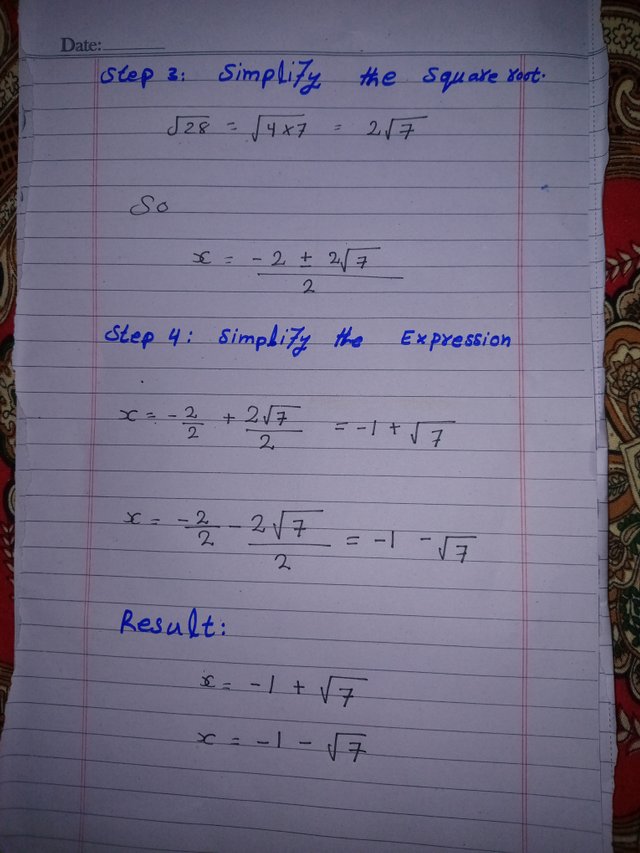 Date:
Step 3: Simplify the Square root.
√28 = √4×7 = 2√7
So
x = -2 ± 2√7 / 2
Step 4: Simplify the Expression
x = -2/2 + 2√7/2 = -1 + √7
x = -2/2 - 2√7/2 = -1 - √7
Result:
x = -1 + √7
x = -1 - √7